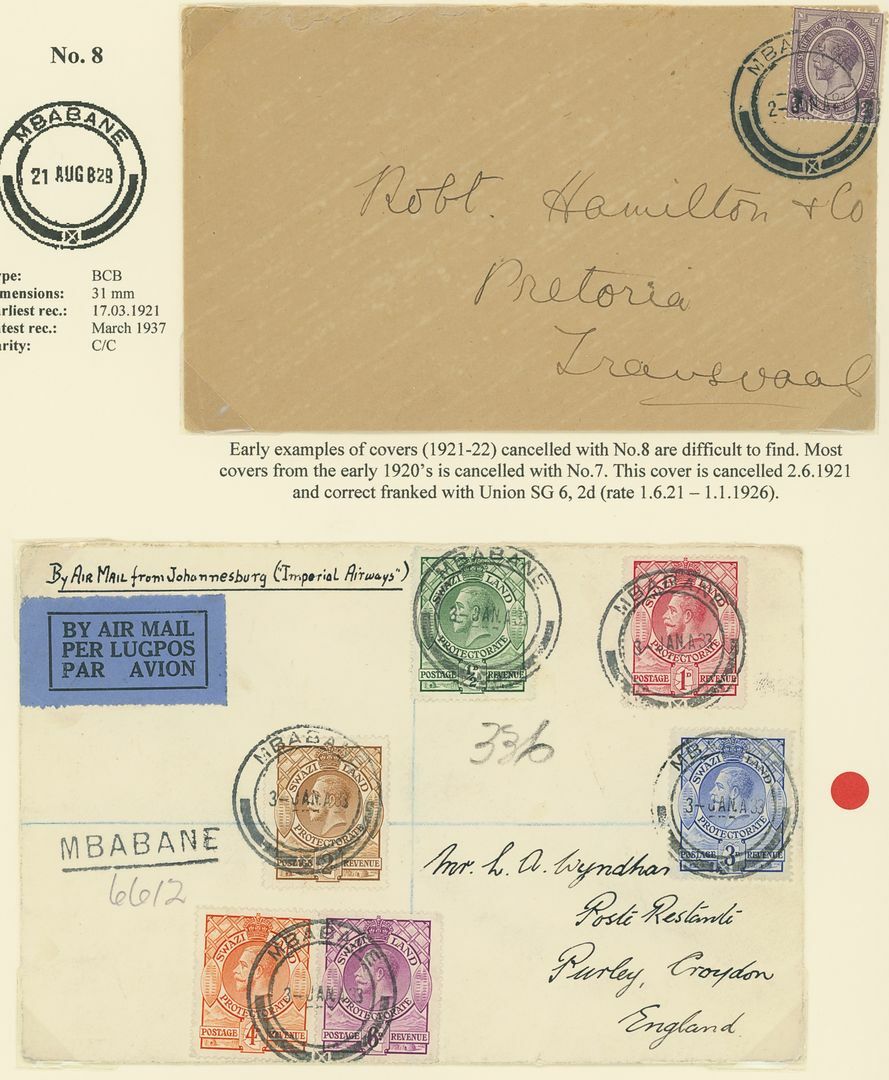 No. 8
MBABANE
21 AUG B 29
ype: BCB
mensions: 31 mm
arliest rec.: 17.03.1921
atest rec.: March 1937
arity: C/C
MBABANE
Robt. Hamilton & Co
Pretoria
Transvaal
Early examples of covers (1921-22) cancelled with No.8 are difficult to find. Most
covers from the early 1920's is cancelled with No.7. This cover is cancelled 2.6.1921
and correct franked with Union SG 6, 2d (rate 1.6.21 – 1.1.1926).
By Air Mail from Johannesburg ("Imperial Airways")
BY AIR MAIL
PER LUGPOS
PAR AVION
MBABANE
SWAZI LAND
PROTECTORATE
POSTAGE ½D REVENUE
MBABANE
SWAZI LAND
3-JAN A 33
PROTECTORATE
POSTAGE 1D REVENUE
336
MBABANE
SWAZI LAND
3-JAN A 33
PROTECTORATE
POSTAGE 2D REVENUE
MBABANE
SWAZI LAND
3-JAN A 33
PROTECTORATE
POSTAGE 3D REVENUE
MBABANE
6612
Mr. L. A. Wyndham
Poste Restante
Purley, Croydon
England
MBABANE
SWAZI LAND
3-JAN 33
PROTECTORATE PROTECTORATE
POSTAGE 4D REVENUE POSTAGE 6D REVENUE